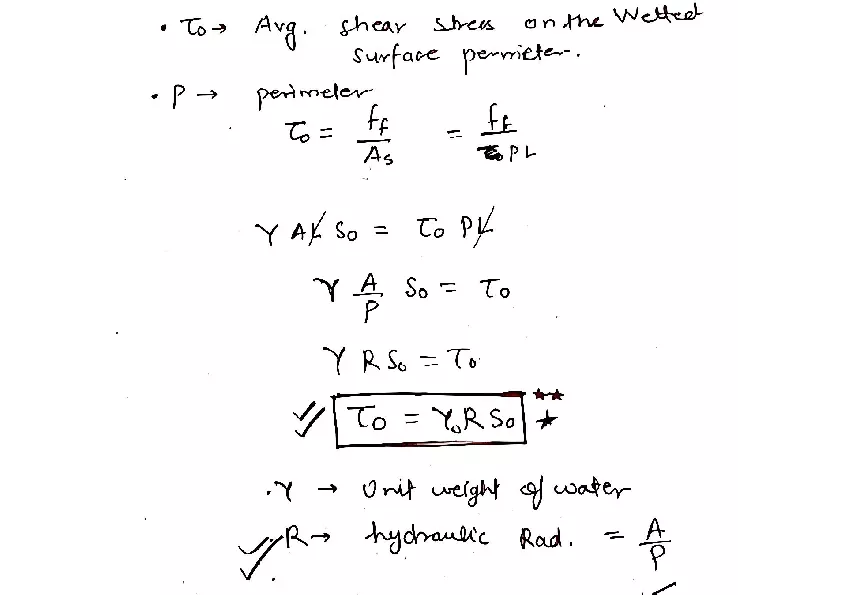 • τo → Avg. shear stress on the Wetted
surface permieter.
• P → perimeter
τo = fF / As = fF / PL
γ A L So = τo P L
γ A/P So = τo
γ R So = τo
τo = γo R So
. γ → Unit weight of water
R → hydraulic Rad. = A/P